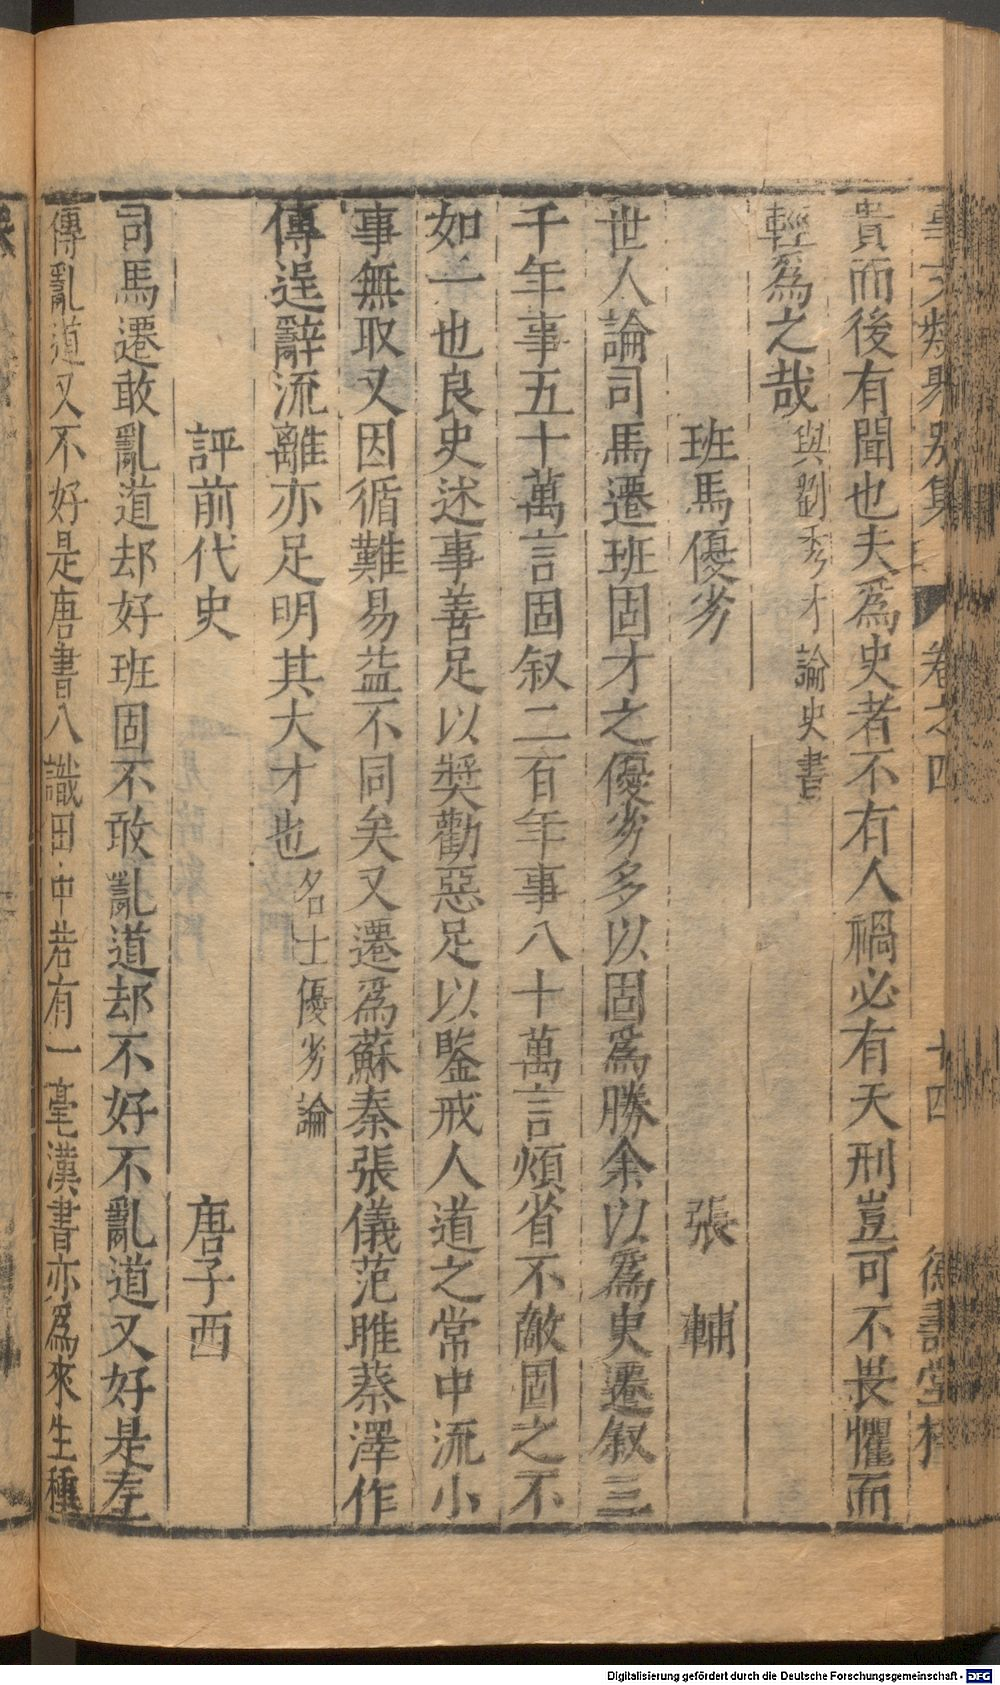 事文類聚別集 卷之四 十四 德壽堂梓
貴而後有聞也夫爲史者不有人禍必有天刑豈可不畏懼而
輕爲之哉 與劉秀才論史書
班馬優劣 張輔
世人論司馬遷班固才之優劣多以固爲勝余以爲史遷叙三
千年事五十萬言固叙二百年事八十萬言煩省不敵固之不
如一也良史述事善足以獎勸惡足以鑒戒人道之常中流小
事無取又因循難易益不同矣又遷爲蘇秦張儀范睢蔡澤作
傳逞辭流離亦足明其大才也 名士優劣論
評前代史 唐子西
司馬遷敢亂道却好班固不敢亂道却不好不亂道又好是左
傳亂道又不好是唐書八識田中若有一毫漢書亦爲來生種
Digitalisierung gefördert durch die Deutsche Forschungsgemeinschaft - DFG